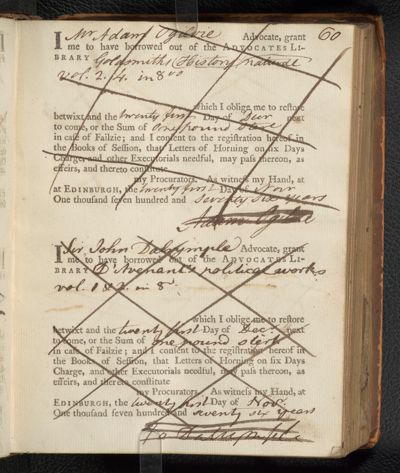 60
I Mr Adam Ogilvie Advocate, grant
me to have borrowed out of the ADVOCATES LI-
BRARY Goldsmiths History
vol. 2. 4. in 8vo
which I oblige me to restore
betwixt and the twenty first Day of Decr next
to come, or the Sum of One pound
in case of Failzie; and I consent to the registration hereof in
the Books of Session, that Letters of Horning on six Days
Charge, and other Executorials needful, may pass thereon, as
effeirs, and thereto constitute
my Procurators. As witness my Hand, at
at EDINBURGH, the twenty first Day of Novr
One thousand seven hundred and Seventy Six years
Adam Ogilvie
I Sir John Dalrymple Advocate, grant
me to have borrowed out of the ADVOCATES LI-
BRARY D Avenant's political works
vol. 1 & 2. in 8
which I oblige me to restore
betwixt and the twenty first Day of Decr. next
to come, or the Sum of one pound sterg
in case of Failzie; and I consent to the registration hereof in
the Books of Session, that Letters of Horning on six Days
Charge, and other Executorials needful, may pass thereon, as
effeirs, and thereto constitute
my Procurators. As witness my Hand, at
EDINBURGH, the twenty first Day of Novr
One thousand seven hundred and seventy six years
Jo Dalrymple